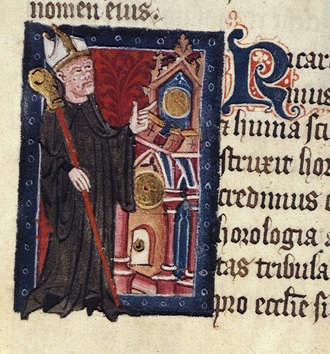 nomen eius.
Ricar
mus
& huma sci
struxit hor
credimus e
horologia a
tas tribula
pro eccl̄ie si